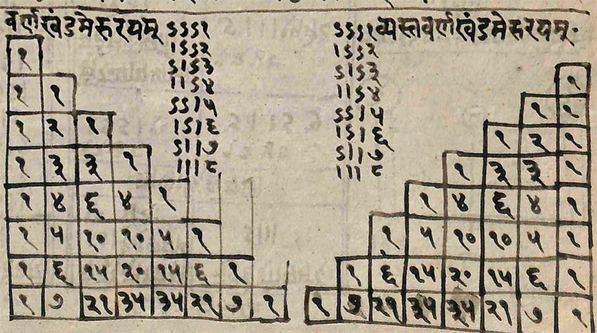 वर्णखंडमेरुरयम्
१
१ १
१ २ १
१ ३ ३ १
१ ४ ६ ४ १
१ ५ १० १० ५ १
१ ६ १५ २० १५ ६ १
१ ७ २१ ३५ ३५ २१ ७ १
ऽऽऽ१
।ऽऽ२
ऽ।ऽ३
।।ऽ४
ऽऽ।५
।ऽ।६
ऽ।।७
।।।८
ऽऽऽ१
।ऽऽ२
ऽ।ऽ३
।।ऽ४
ऽऽ।५
।ऽ।६
ऽ।।७
।।।८
व्यस्तवर्णखंडमेरुरयम्.
१
१ १
१ २ १
१ ३ ३ १
१ ४ ६ ४ १
१ ५ १० १० ५ १
१ ६ १५ २० १५ ६ १
१ ७ २१ ३५ ३५ २१ ७ १